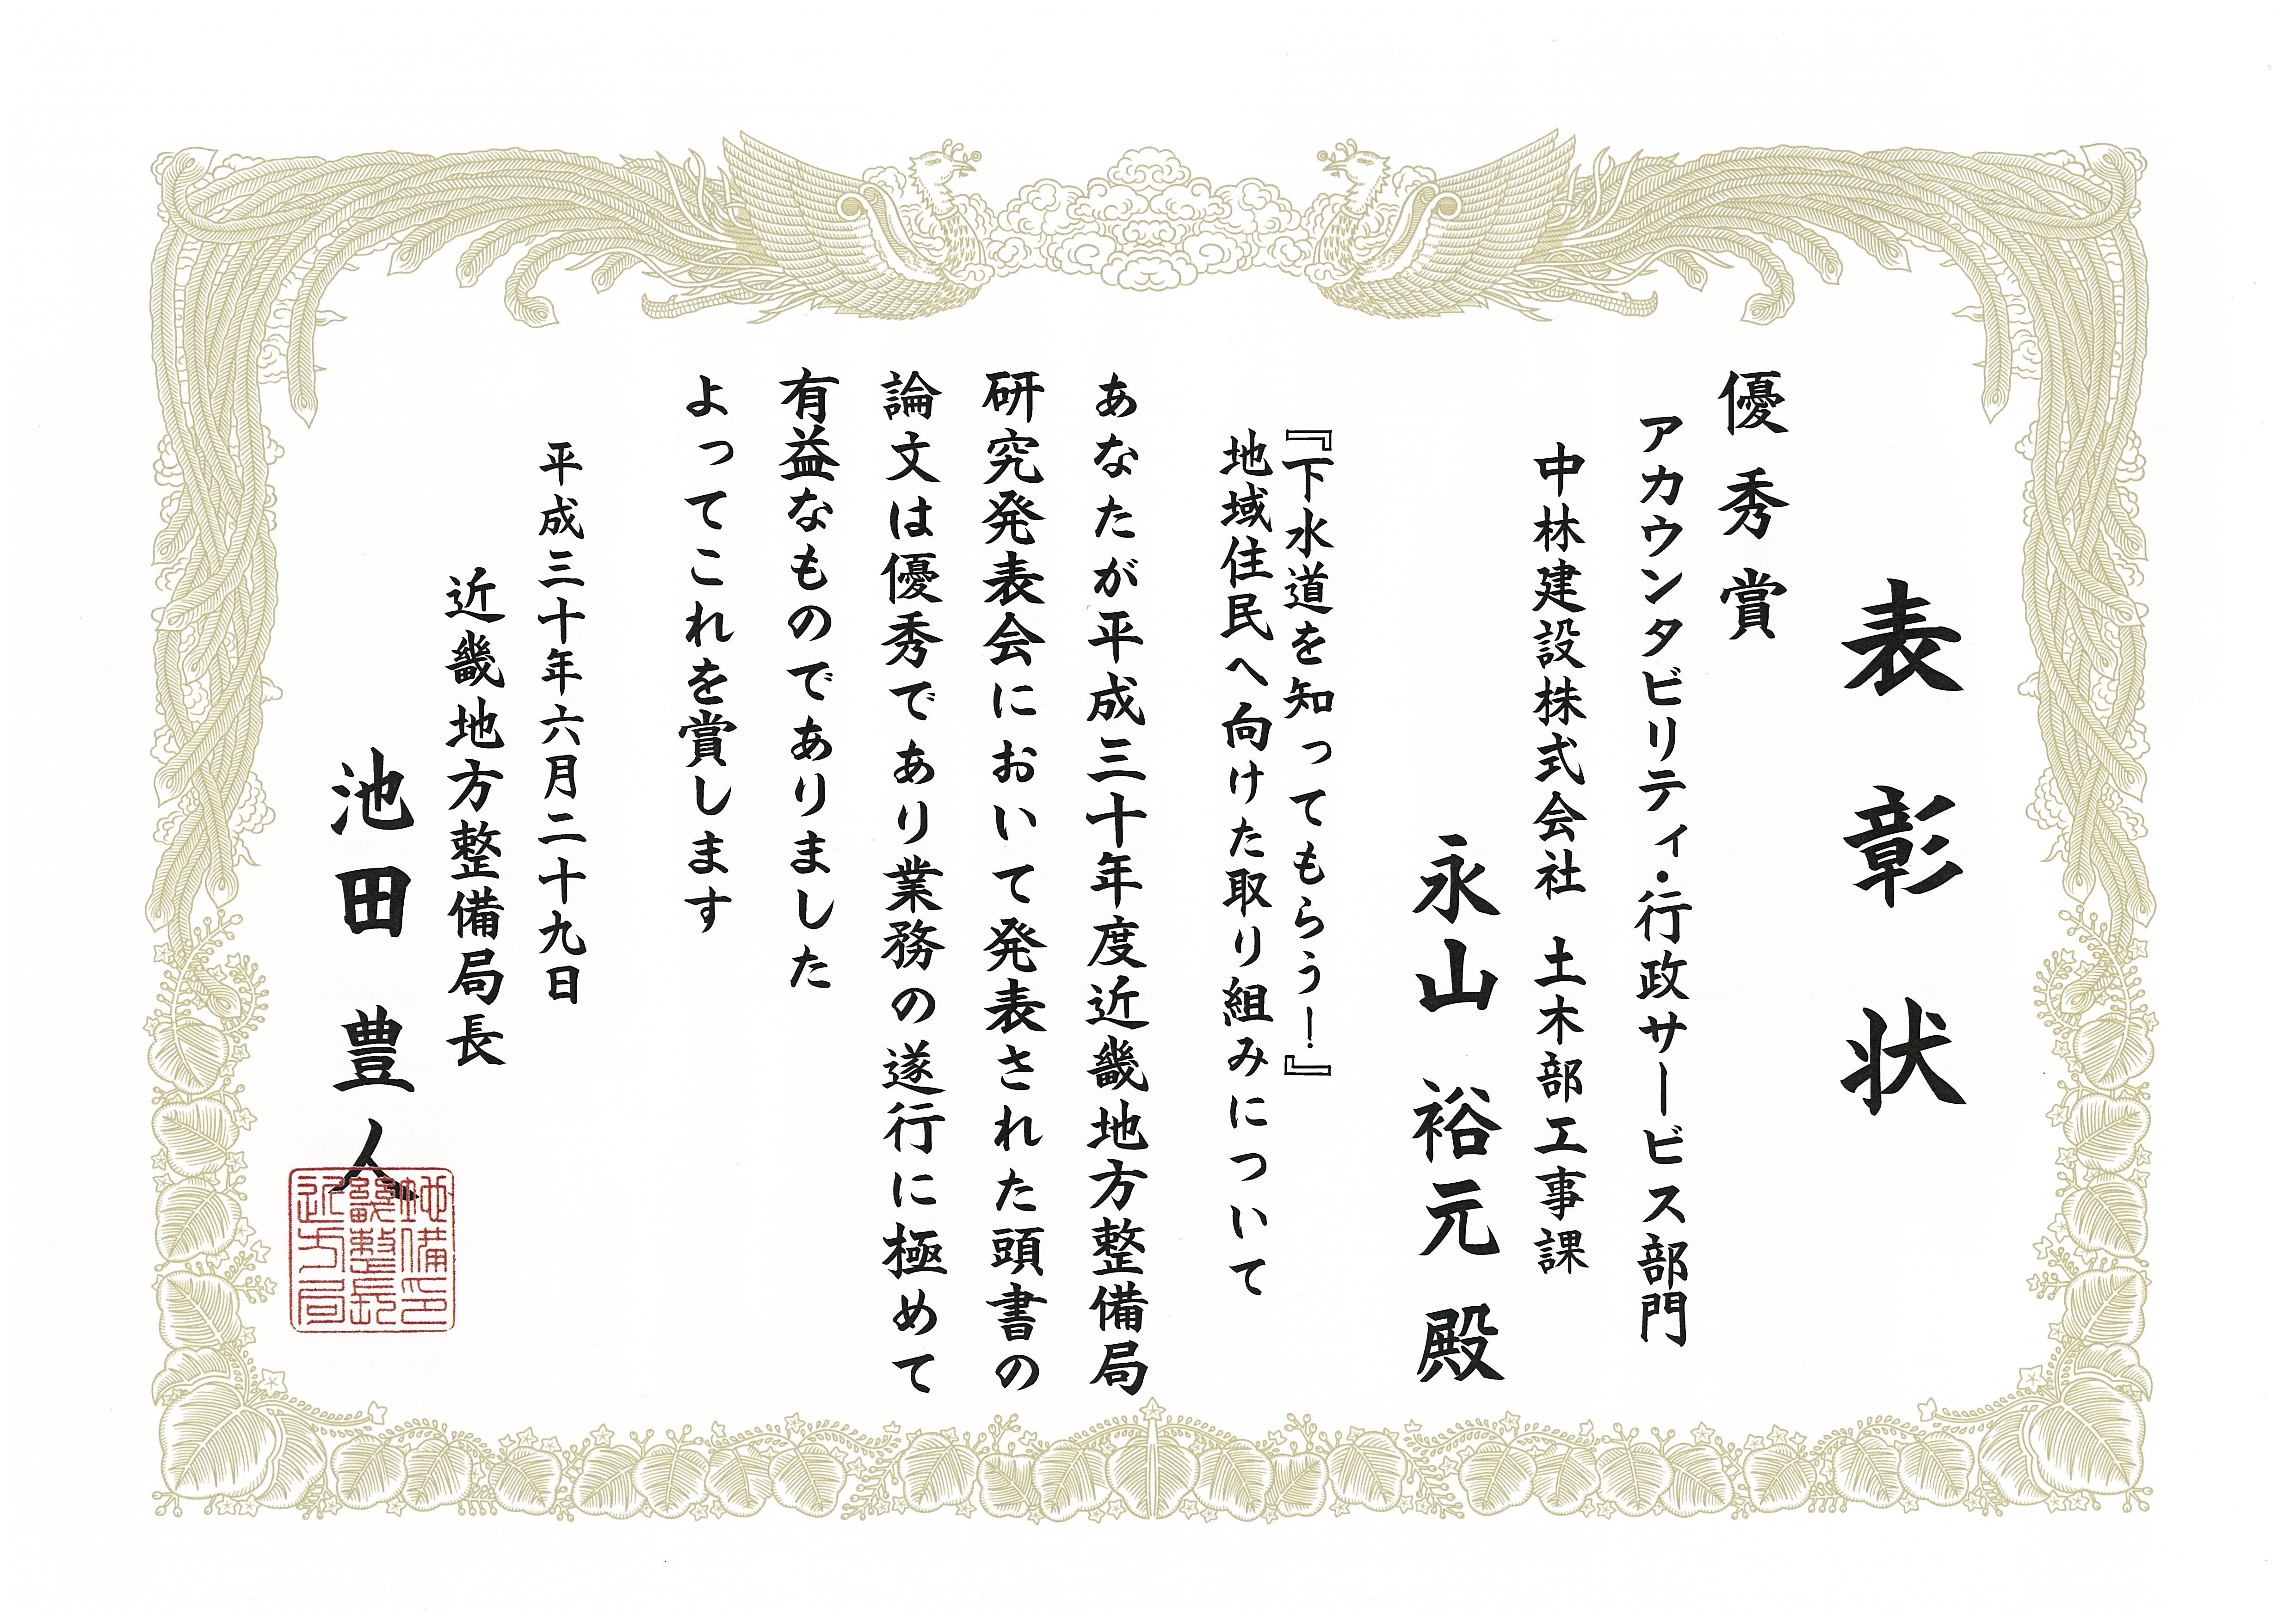 表彰状
優秀賞
アカウンタビリティ・行政サービス部門
中林建設株式会社 土木部工事課
永山 裕元 殿
『下水道を知ってもらう!』
地域住民へ向けた取り組みについて
あなたが平成三十年度近畿地方整備局
研究発表会において発表された頭書の
論文は優秀であり業務の遂行に極めて
有益なものでありました
よってこれを賞します
平成三十年六月二十九日
近畿地方整備局長
池田 豊人
近畿地方整備局長印